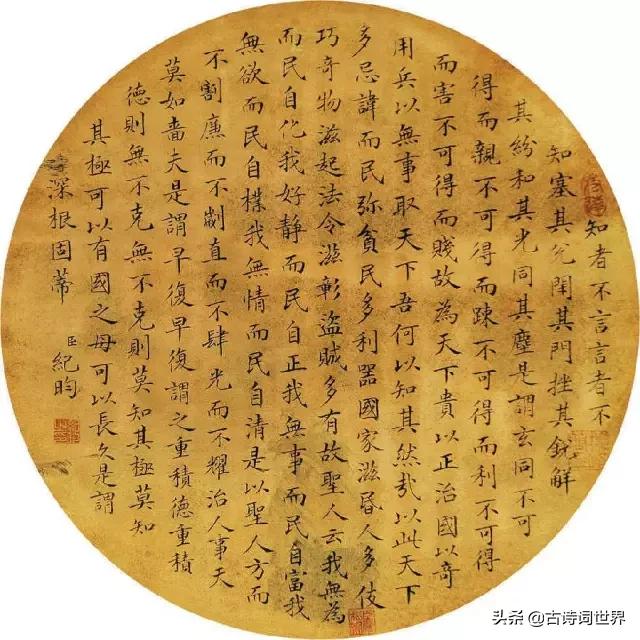 知者不言言者不
知塞其兌閉其門挫其銳解
其紛和其光同其塵是謂玄同不可
得而親不可得而踈不可得而利不可得
而害不可得而賤故為天下貴以正治國以奇
用兵以無事取天下吾何以知其然哉以此天下
多忌諱而民弥貧民多利器國家滋昏人多伎
巧奇物滋起法令滋彰盜賊多有故聖人云我無為
而民自化我好静而民自正我無事而民自富我
無欲而民自樸我無情而民自清是以聖人方而
不割廉而不劌直而不肆光而不耀治人事天
莫如嗇夫是謂早復早復謂之重積德重積
德則無不克無不克則莫知其極莫知
其極可以有國之母可以長久是謂
深根固蒂
臣紀昀
头条 @古诗词世界